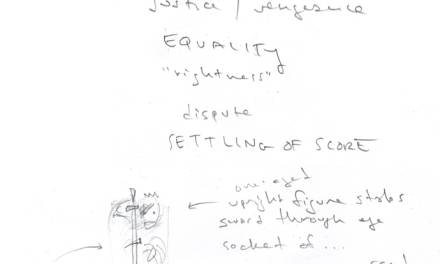 justice / vengeance
EQUALITY
"rightness"
dispute
SETTLING OF SCORE
one-eyed
upright figure stabs
sword through eye
socket of ...